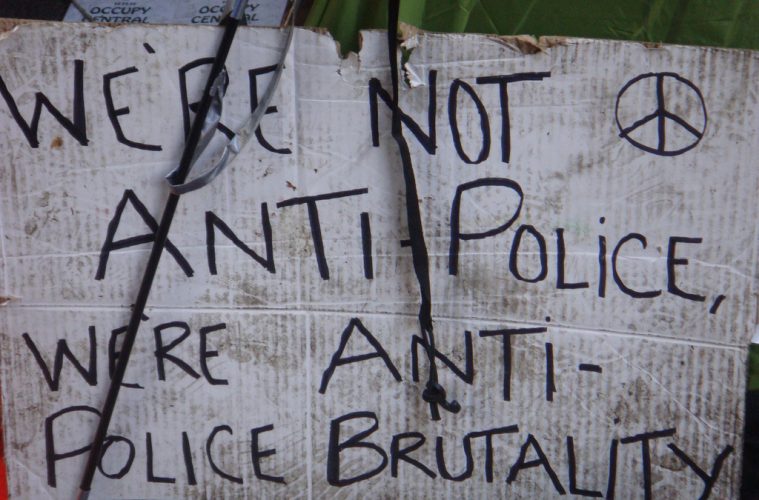 OCCUPY OCCUPY
CENTRAL CENTRAL
WE'RE NOT
ANTI-POLICE,
WE'RE ANTI-
POLICE BRUTALITY